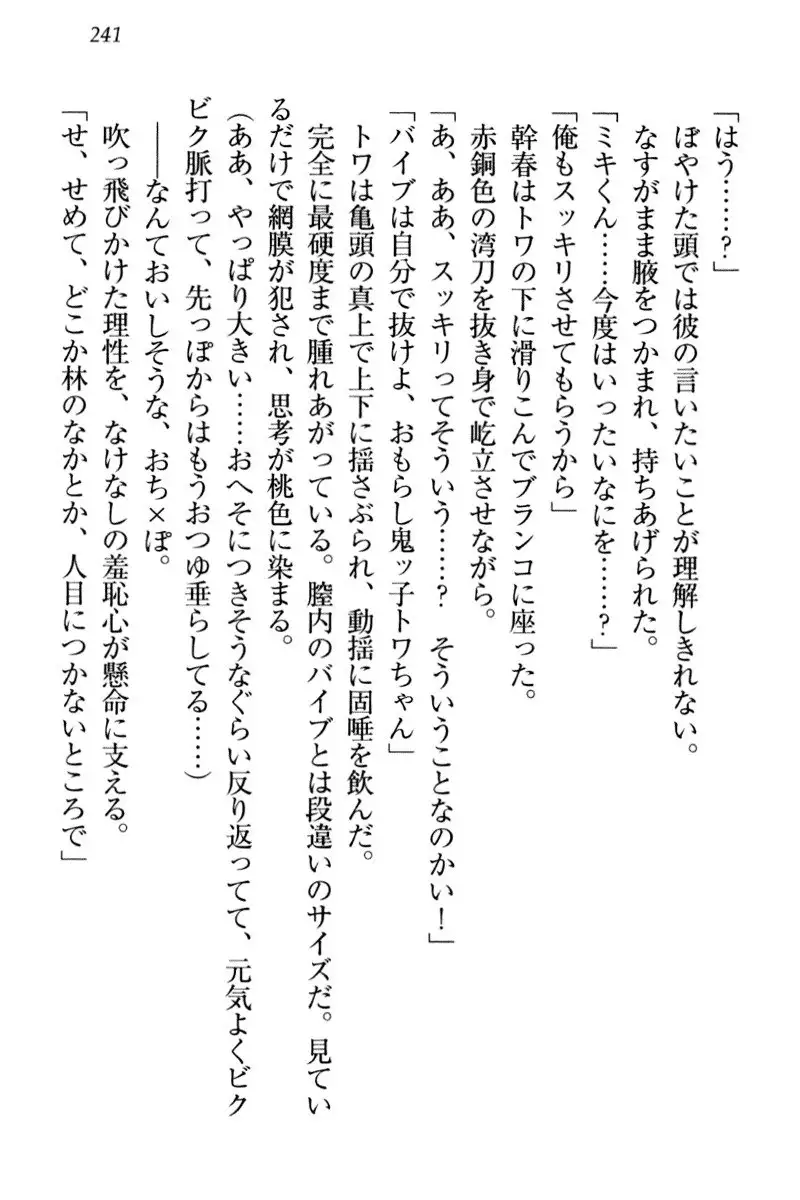 241
「はう……?」
ぼやけた頭では彼の言いたいことが理解しきれない。
なすがまま腋をつかまれ、持ちあげられた。
「ミキくん……今度はいったいなにを……?」
「俺もスッキリさせてもらうから」
幹春はトワの下に滑りこんでブランコに座った。
赤銅色の湾刀を抜き身で屹立させながら。
「あ、ああ、スッキリってそういう……?　そういうことなのかい!」
「バイブは自分で抜けよ、おもらし鬼ッ子トワちゃん」
トワは亀頭の真上で上下に揺さぶられ、動揺に固唾を飲んだ。
完全に最硬度まで腫れあがっている。膣内のバイブとは段違いのサイズだ。見てい
るだけで網膜が犯され、思考が桃色に染まる。
(ああ、やっぱり大きい……おへそにつきそうなぐらい反り返ってて、元気よくビク
ビク脈打って、先っぽからはもうおつゆ垂らしてる……)
――なんておいしそうな、おち×ぽ。
吹っ飛びかけた理性を、なけなしの羞恥心が懸命に支える。
「せ、せめて、どこか林のなかとか、人目につかないところで」